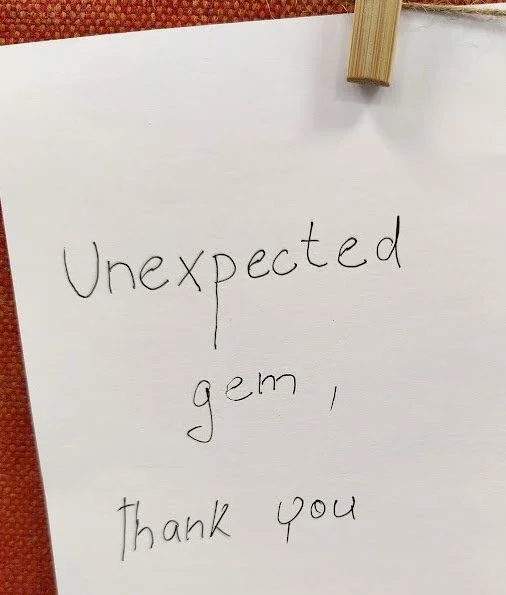 Unexpected
gem,
thank you